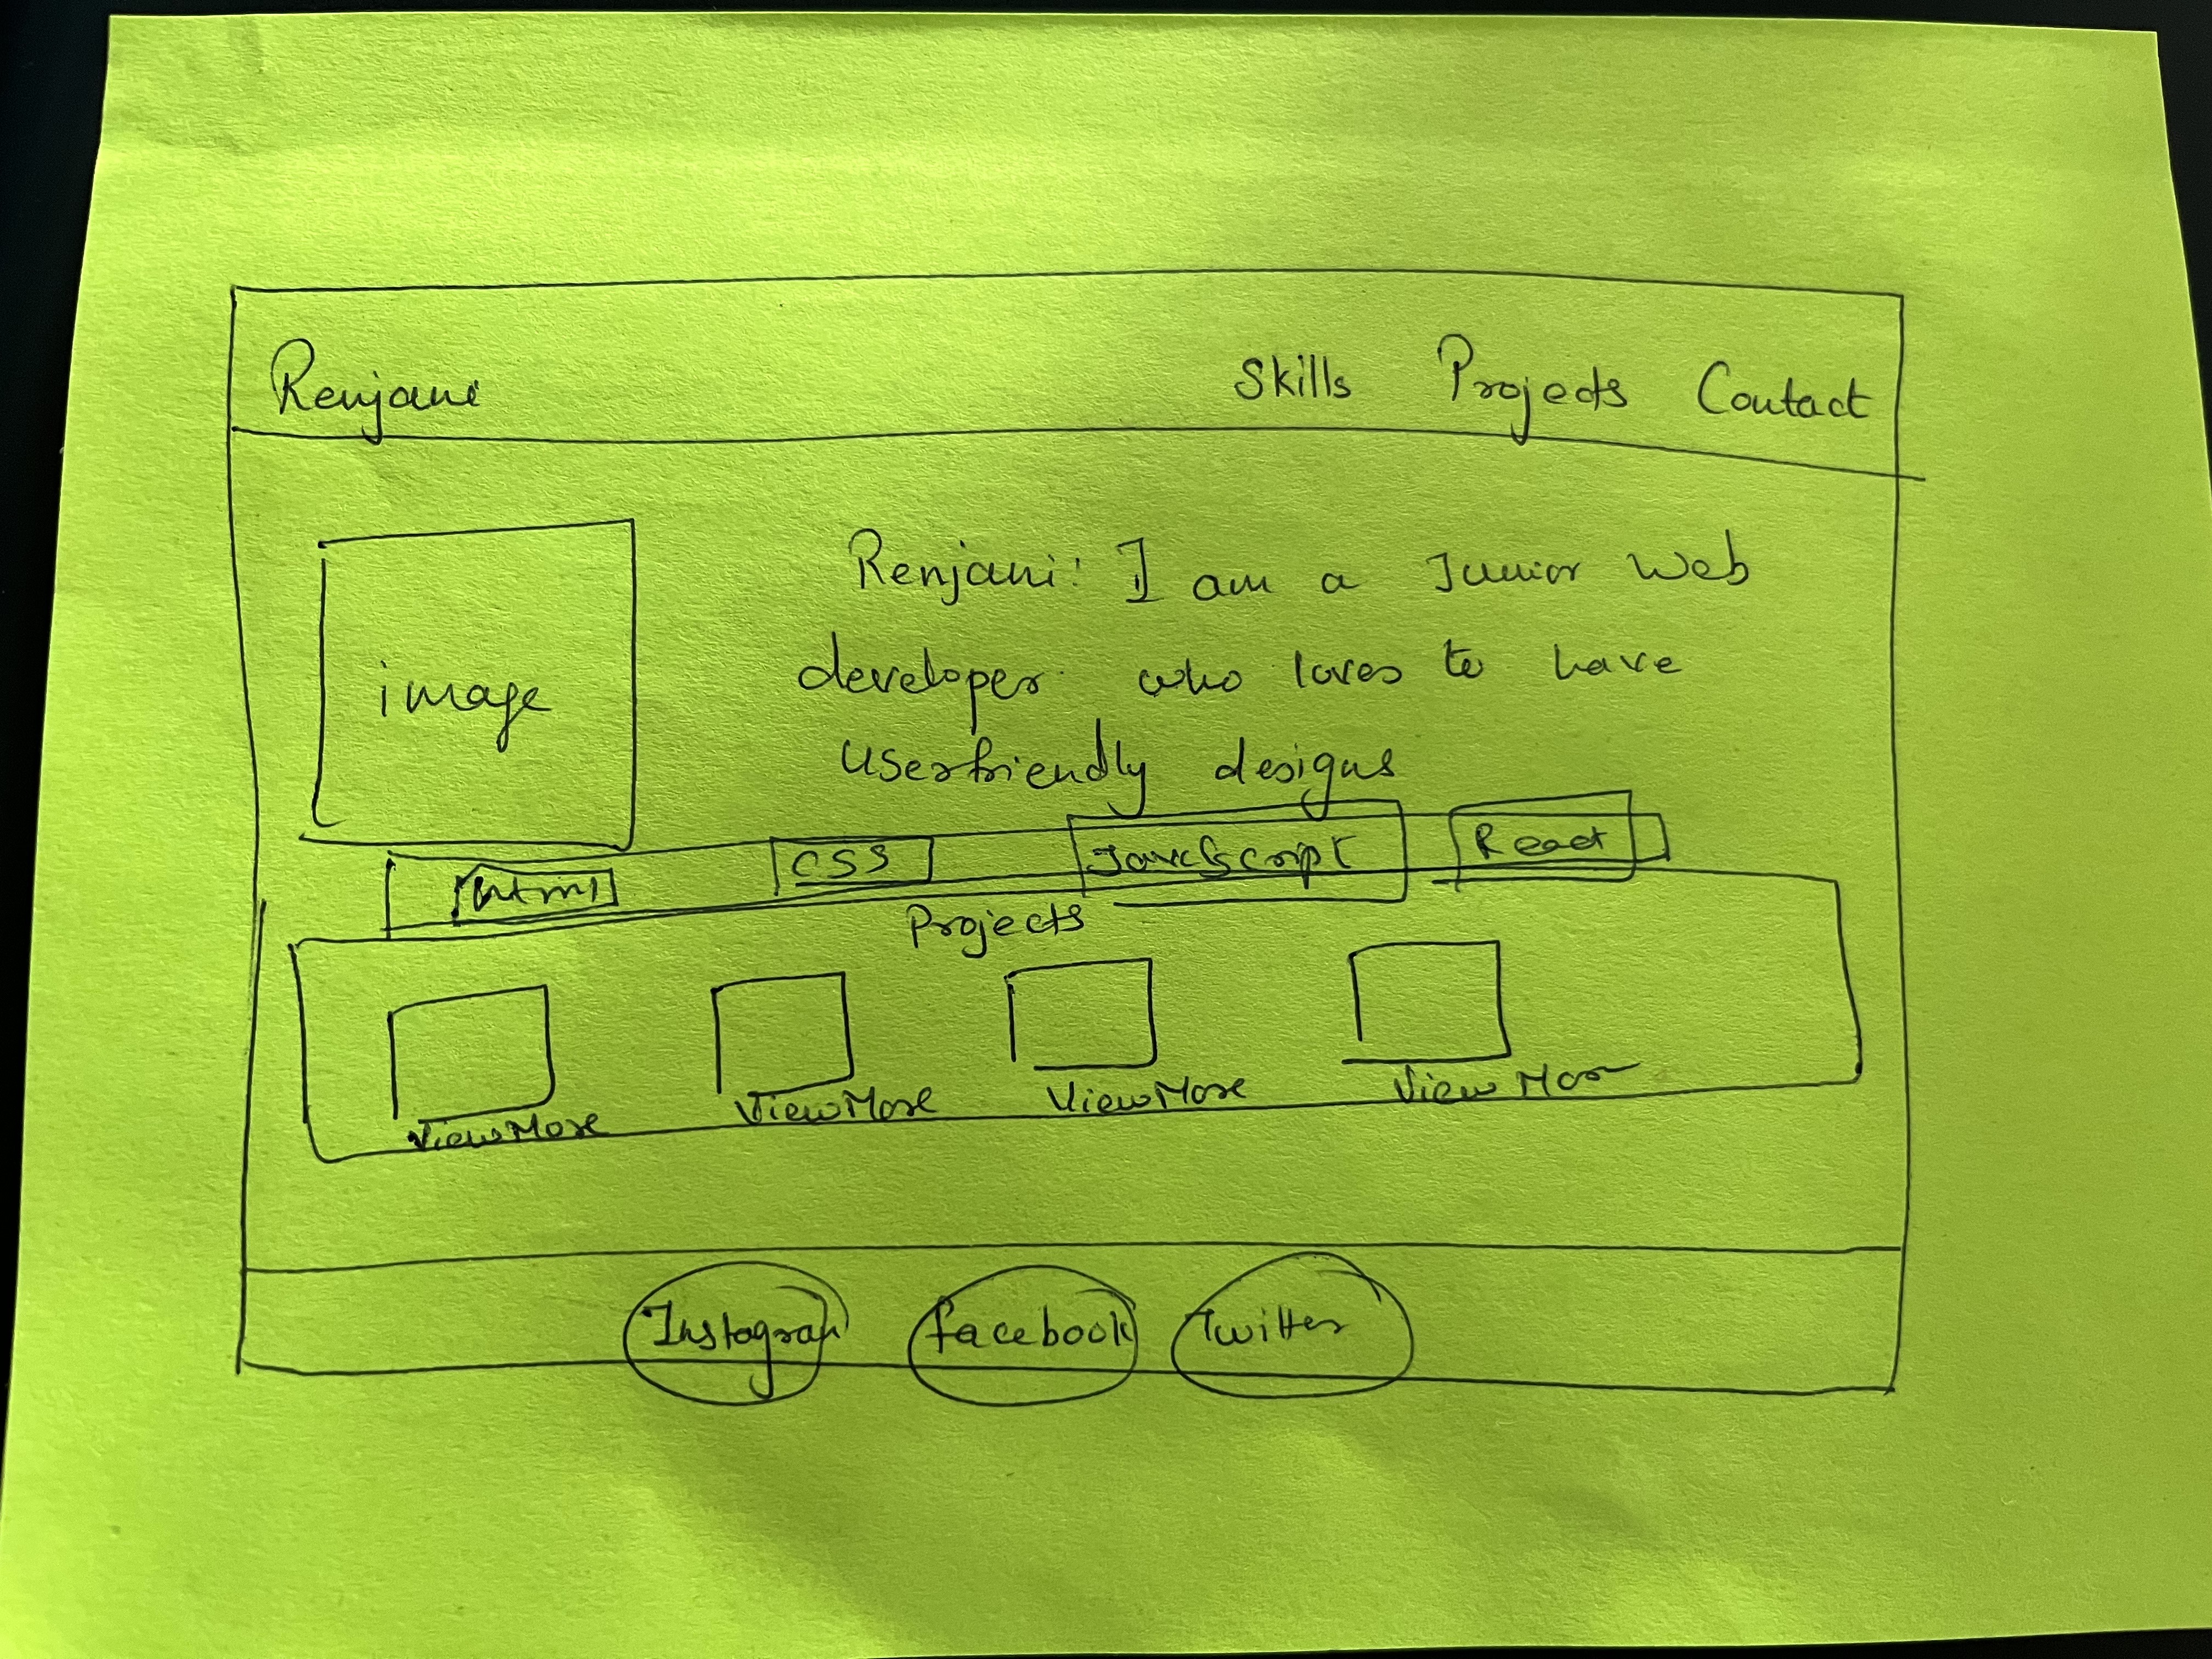 Renjani Skills Projects Contact
Renjani: I am a Junior Web
developer who loves to have
image
userfriendly designs
html CSS JavaScript React
Projects
View More View More View More View More
Instagram facebook Twitter